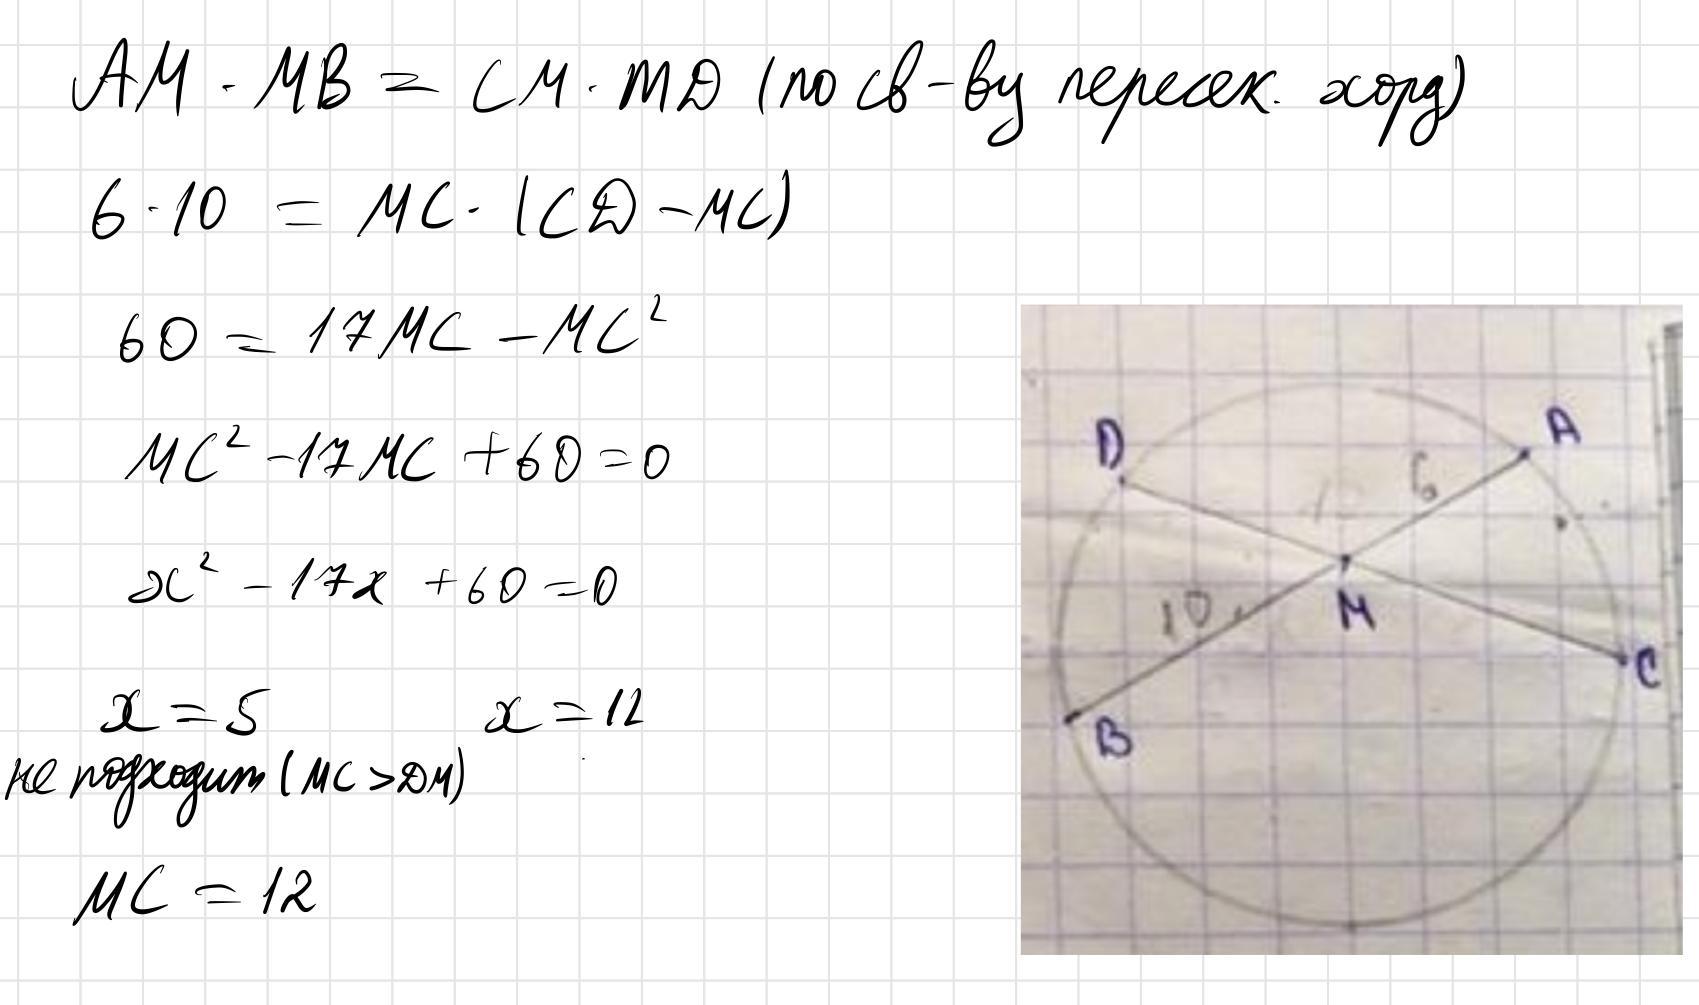 AM · MB = CM · MD (по св-ву пересек. хорд)
6 · 10 = MC · (CD - MC)
60 = 17MC - MC²
MC² - 17MC + 60 = 0
x² - 17x + 60 = 0
x = 5 x = 12
не подходит (MC > DM)
MC = 12
D
A
6
M
10
C
B